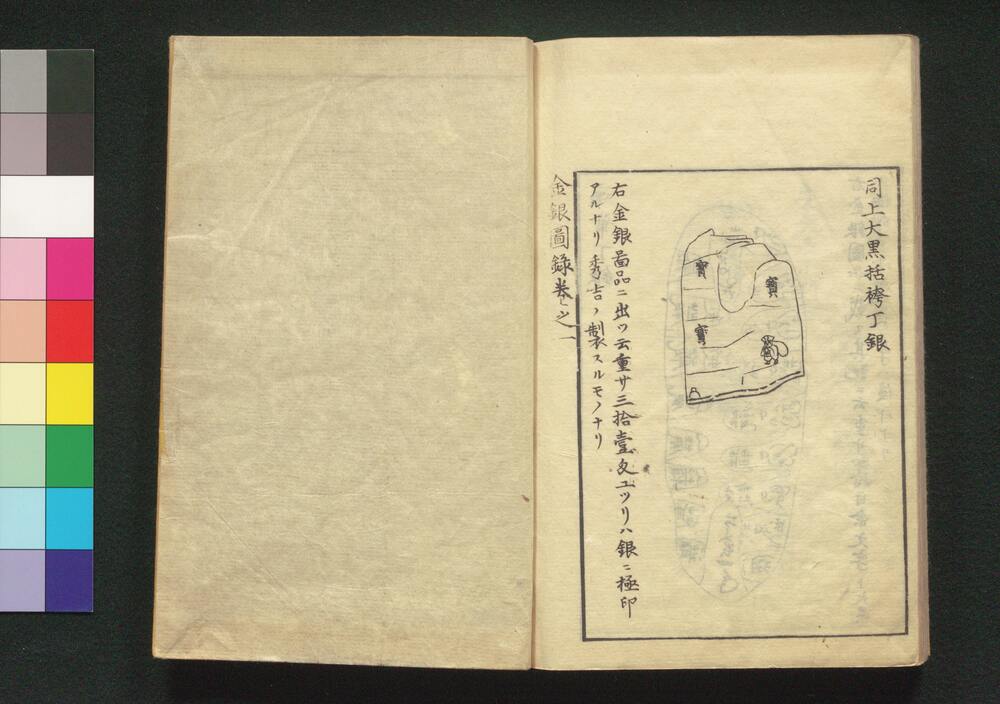 同上大黒括袴丁銀
寳
寳
寳
右金銀啚品ニ出ツ云重サ三拾壹匁エツリハ銀ニ極印
アルナリ秀吉ノ製スルモノナリ
金銀圖錄卷之